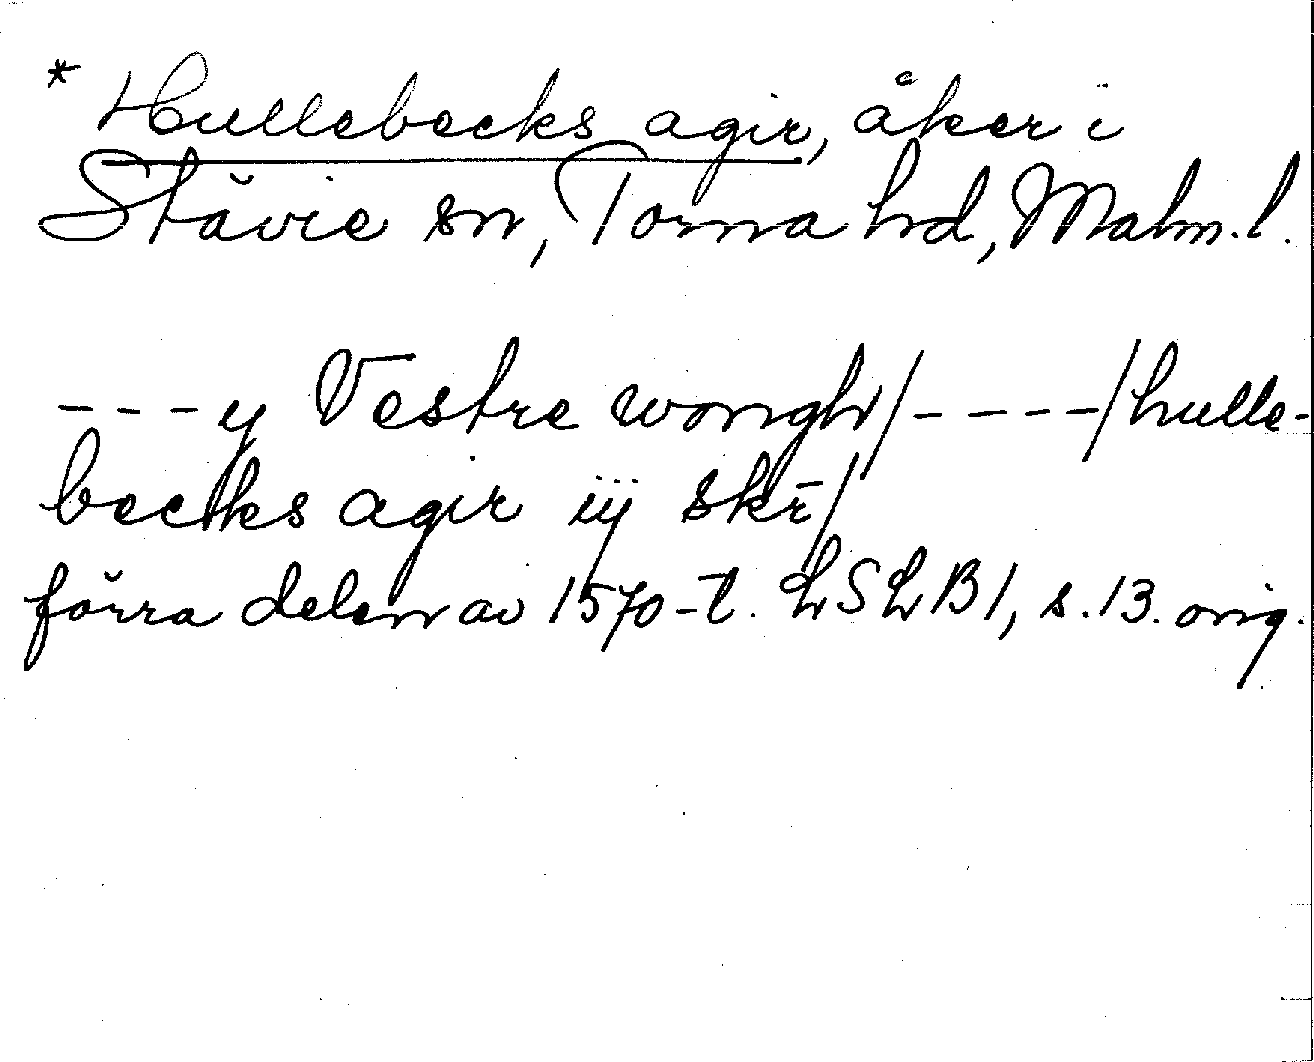 * Hullebecks agir, åker i
Stävie sn, Torna hd, Malm. l.
---y Vestre wongh/----/hulle-
becks agir iij skr̄/
förra delen av 1570-t. LSLB1, s. 13. orig.